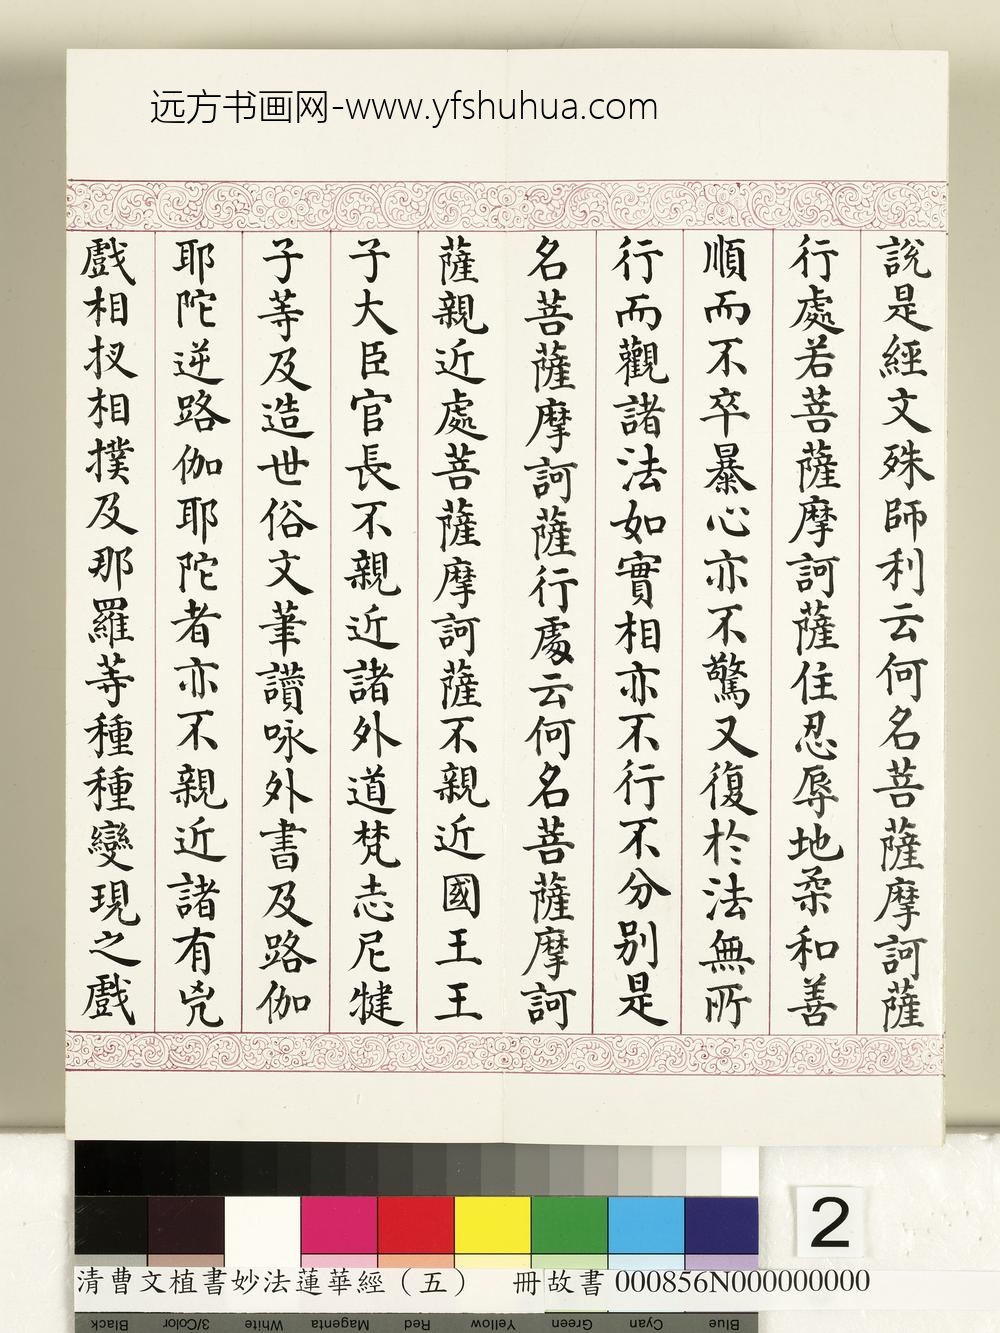 远方书画网-www.yfshuhua.com
說是經文殊師利云何名菩薩摩訶薩
行處若菩薩摩訶薩住忍辱地柔和善
順而不卒暴心亦不驚又復於法無所
行而觀諸法如實相亦不行不分別是
名菩薩摩訶薩行處云何名菩薩摩訶
薩親近處菩薩摩訶薩不親近國王王
子大臣官長不親近諸外道梵志尼犍
子等及造世俗文筆讚咏外書及路伽
耶陀逆路伽耶陀者亦不親近諸有兇
戲相扠相撲及那羅等種種變現之戲
2
清曹文植書妙法蓮華經（五） 冊故書 000856N000000000
Black 3/Color White Magenta Red Yellow Green Cyan Blue